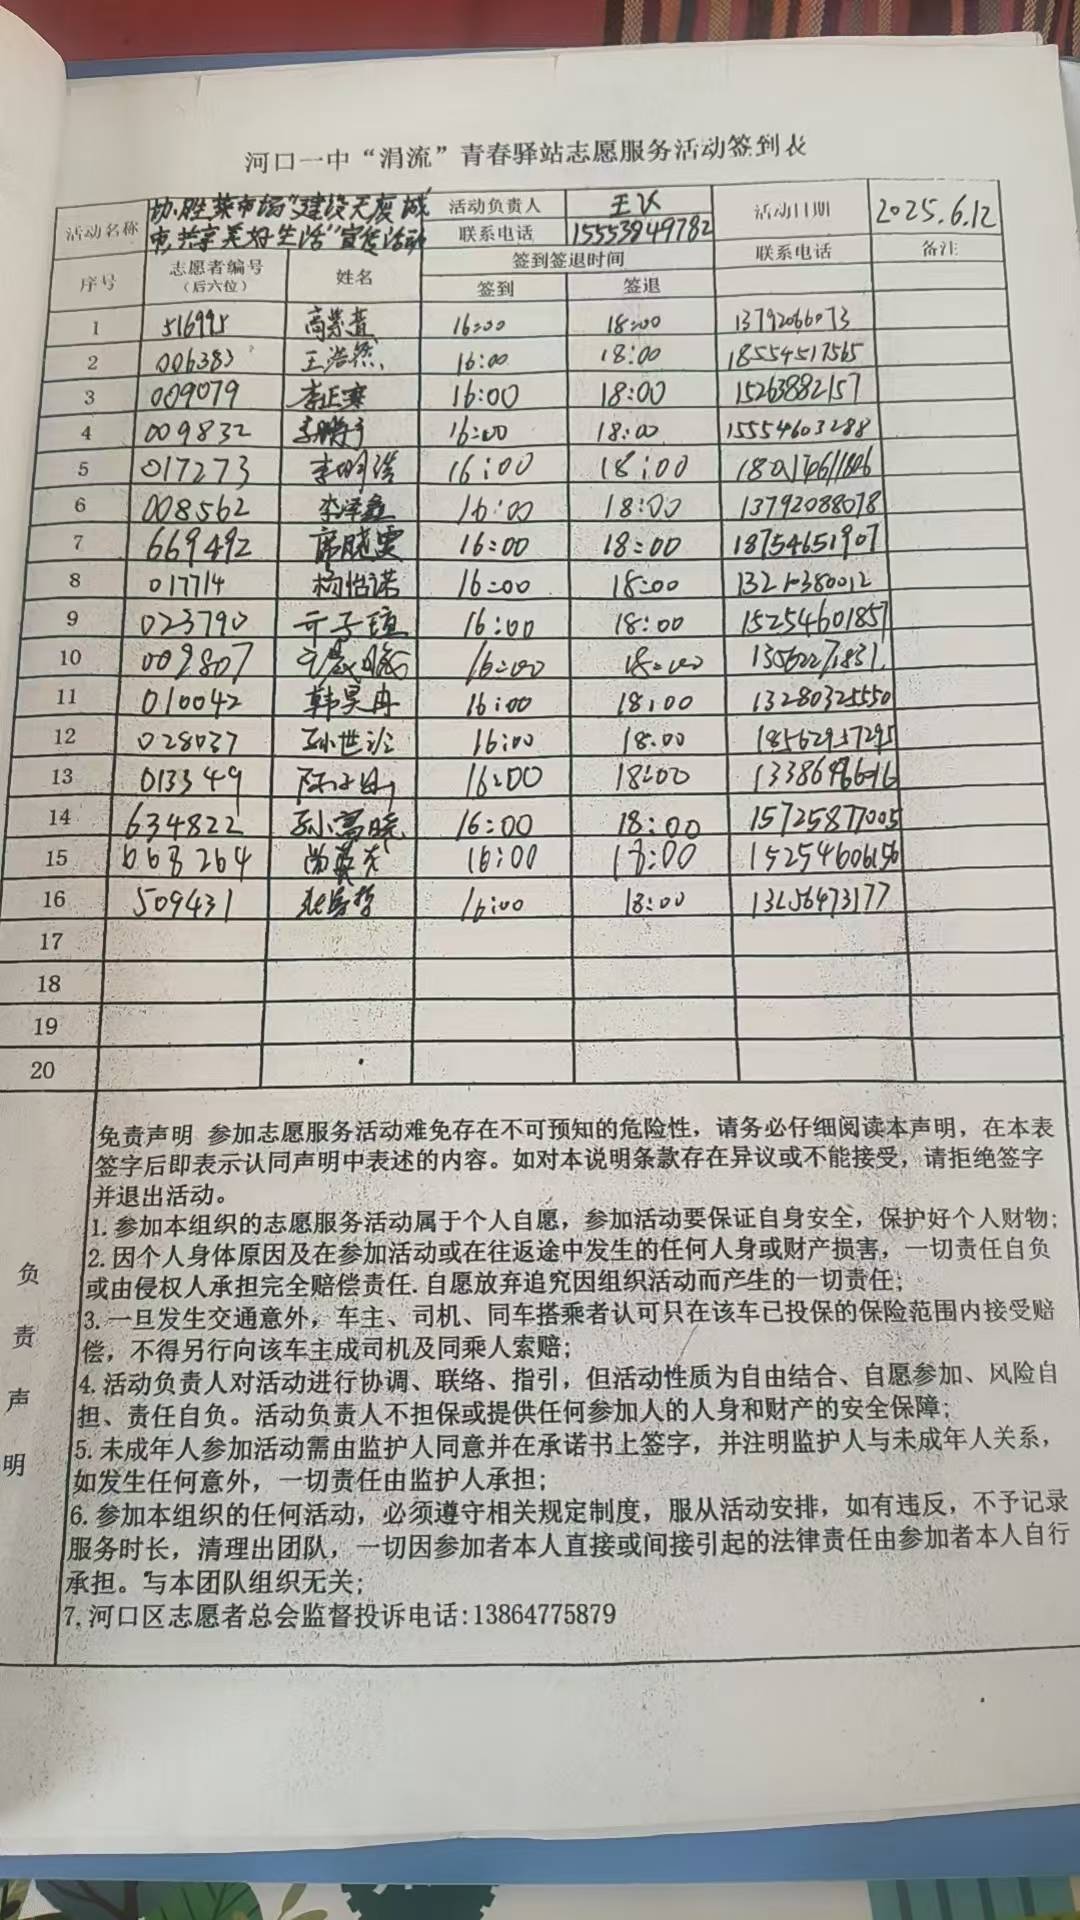 河口一中“涓流”青春驿站志愿服务活动签到表
活动名称 协胜菜市场“建设无废城市,共享美好生活”宣传活动 活动负责人 王 活动日期 2025.6.12
联系电话 15553849782
序号 志愿者编号（后六位） 姓名 签到签退时间 联系电话 备注
签到 签退
1 516995 高崇萱 16:00 18:00 13792066073
2 006383 王浩然 16:00 18:00 18554517565
3 009079 李正寒 16:00 18:00 15263882157
4 009832 李 16:00 18:00 15554603288
5 017273 李明浩 16:00 18:00
6 008562 李泽鑫 16:00 18:00 13792088078
7 669492 席晓雯 16:00 18:00 18754651907
8 017714 杨怡诺 16:00 18:00
9 023790 亓子瑄 16:00 18:00 15254601857
10 009807 16:00 18:00 13562271831
11 010042 韩昊冉 16:00 18:00 13280325550
12 028037 孙世 16:00 18:00 18562957295
13 013349 陈子 16:00 18:00
14 634822 孙富晓 16:00 18:00 15725877005
15 668264 尚 16:00 18:00 15254606156
16 509431 16:00 18:00 13256473177
17
18
19
20
负责声明
免责声明 参加志愿服务活动难免存在不可预知的危险性，请务必仔细阅读本声明，在本表
签字后即表示认同声明中表述的内容。如对本说明条款存在异议或不能接受，请拒绝签字
并退出活动。
1.参加本组织的志愿服务活动属于个人自愿，参加活动要保证自身安全，保护好个人财物；
2.因个人身体原因及在参加活动或在往返途中发生的任何人身或财产损害，一切责任自负
或由侵权人承担完全赔偿责任.自愿放弃追究因组织活动而产生的一切责任；
3.一旦发生交通意外，车主、司机、同车搭乘者认可只在该车已投保的保险范围内接受赔
偿，不得另行向该车主成司机及同乘人索赔；
4.活动负责人对活动进行协调、联络、指引，但活动性质为自由结合、自愿参加、风险自
担、责任自负。活动负责人不担保或提供任何参加人的人身和财产的安全保障；
5.未成年人参加活动需由监护人同意并在承诺书上签字，并注明监护人与未成年人关系，
如发生任何意外，一切责任由监护人承担；
6.参加本组织的任何活动，必须遵守相关规定制度，服从活动安排，如有违反，不予记录
服务时长，清理出团队，一切因参加者本人直接或间接引起的法律责任由参加者本人自行
承担。与本团队组织无关；
7.河口区志愿者总会监督投诉电话:13864775879